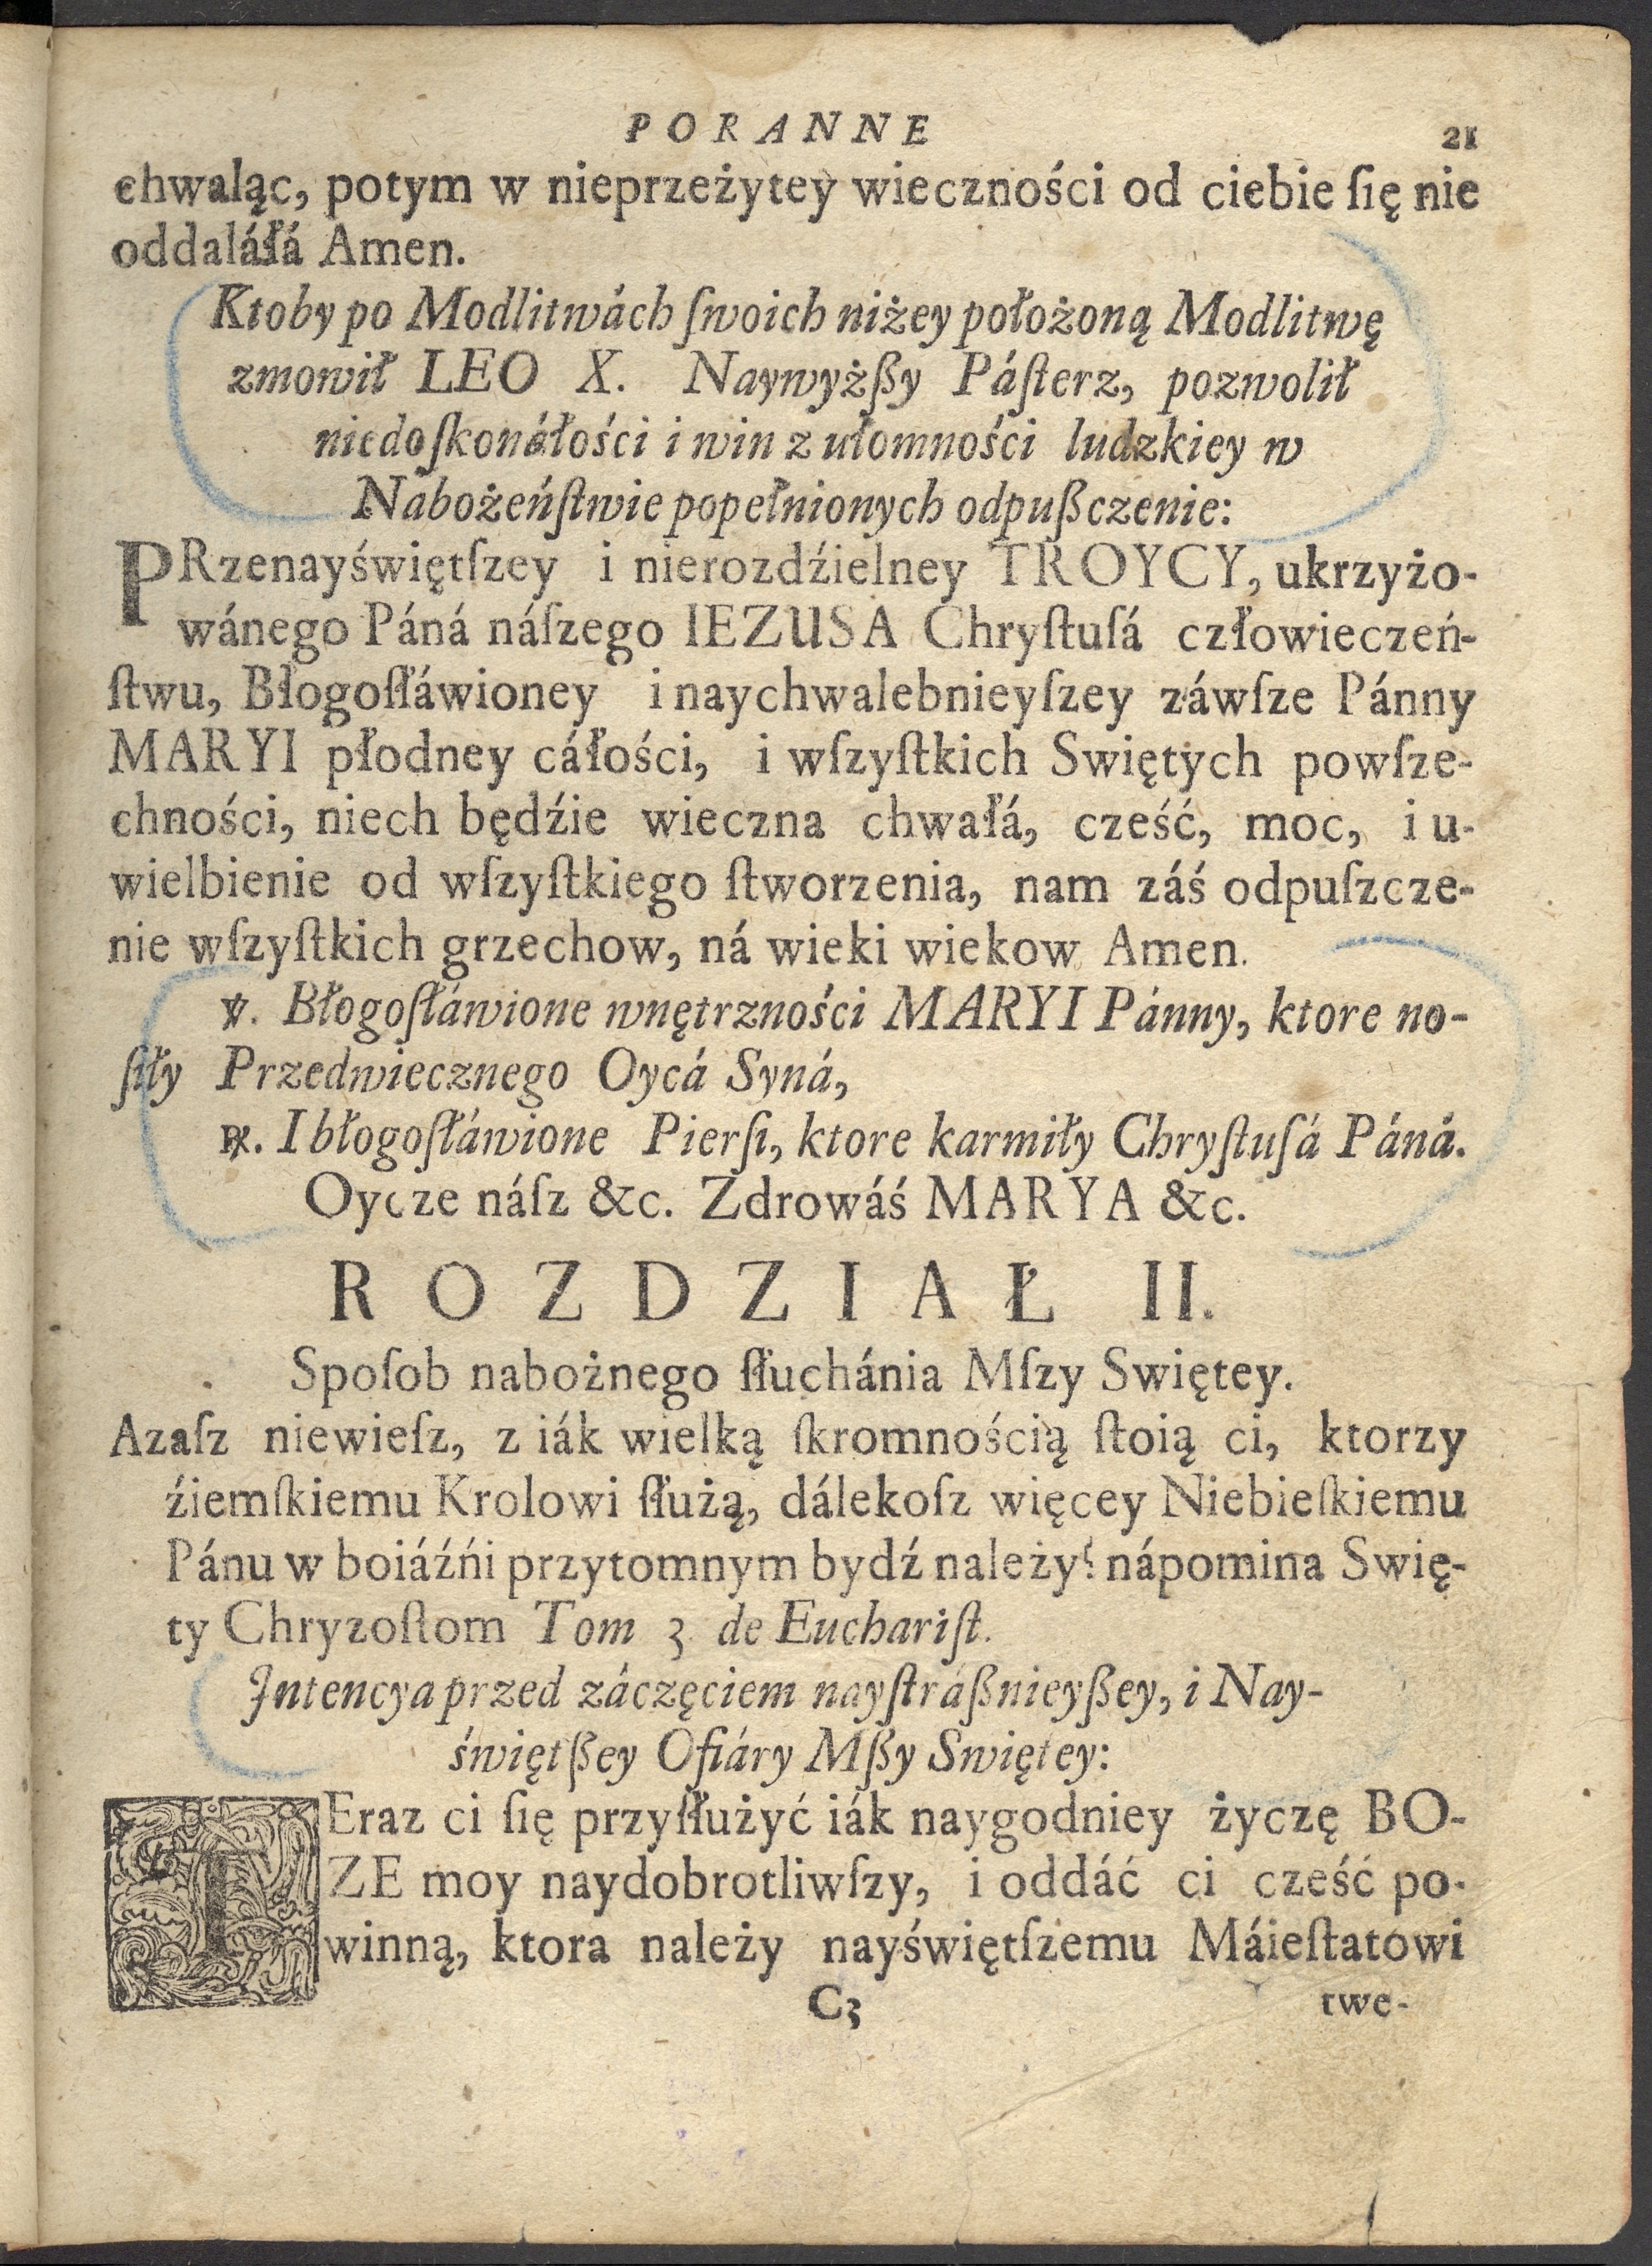 PORANNE 21
chwaląc, potym w nieprzeżytey wieczności od ciebie ſię nie
oddaláłá Amen.
Ktoby po Modlitwách ſwoich niżey położoną Modlitwę
zmowił LEO X. Naywyżßy Páſterz, pozwolił
niedoſkonáłości i win z ułomności ludzkiey w
Nabożeńſtwie popełnionych odpußczenie:
PRzenayświętſzey i nierozdźielney TROYCY, ukrzyżo-
wánego Páná náſzego IEZUSA Chryſtuſá człowieczeń-
ſtwu, Błogoſłáwioney i naychwalebnieyſzey záwſze Pánny
MARYI płodney cáłości, i wſzyſtkich Swiętych powſze-
chności, niech będźie wieczna chwałá, cześć, moc, i u-
wielbienie od wſzyſtkiego ſtworzenia, nam záś odpuſzcze-
nie wſzyſtkich grzechow, ná wieki wiekow Amen.
℣. Błogoſłáwione wnętrzności MARYI Pánny, ktore no-
ſiły Przedwiecznego Oycá Syná,
℟. I błogoſłáwione Pierſi, ktore karmiły Chryſtuſá Páná.
Oycze náſz &c. Zdrowáś MARYA &c.
ROZDZIAŁ II.
Spoſob nabożnego ſłuchánia Mſzy Swiętey.
Azaſz niewieſz, z iák wielką ſkromnością ſtoią ci, ktorzy
źiemſkiemu Krolowi ſłużą, dálekoſz więcey Niebieſkiemu
Pánu w boiáźńi przytomnym bydź należy? nápomina Swię-
ty Chryzoſtom Tom 3. de Euchariſt.
Intencya przed záczęciem nayſtráßnieyßey, i Nay-
świętßey Ofiáry Mßy Swiętey:
TEraz ci ſię przyſłużyć iák naygodniey życzę BO-
ZE moy naydobrotliwſzy, i oddáć ci cześć po-
winną, ktora należy nayświętſzemu Máieſtatowi
C3 twe-